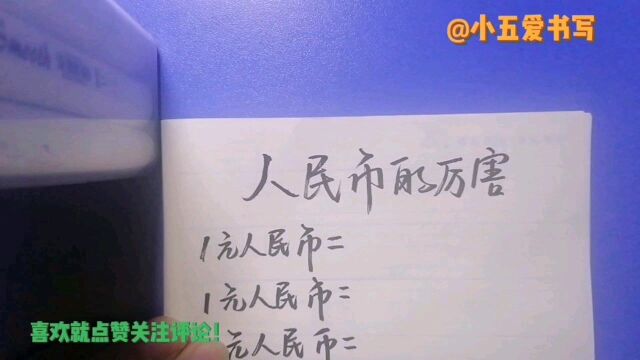 @小五爱书写
人民币的厉害
1元人民币=
1元人民币=
元人民币=
喜欢就点赞关注评论!